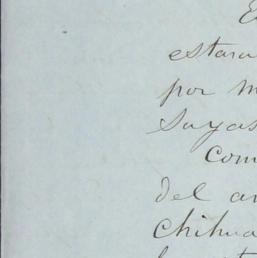 E
estara
por m
Suyas
Com
del an
Chihua